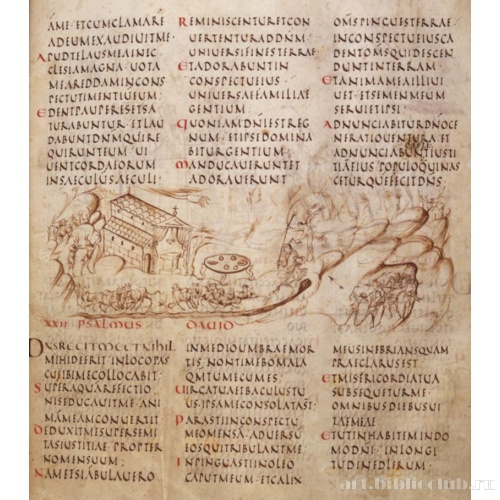 ÁME·ETCUMCLAMARE
ADEUMEXAUDIUITME·
APUDTELAUSMEAINEC
CLESIAMAGNA·UOTA
MEAREDDAMINCONS
PECTUTIMENTIUEUM·
EDENTPAUPERESETSA
TURABUNTUR·ETLAU
DABUNTDNMQUIRE
QUIRUNTEUM·UI
UENTCORDAEORUM
INSAECULUSAECULI·
REMINISCENTURETCON
UERTENTURADDNM
UNIUERSIFINESTERRAE
ETADORABUNTIN
CONSPECTUEIUS·
UNIUERSAEFAMILIAE
GENTIUM·
QUONIAMDNIESTREG
NUM·ETIPSEDOMINA
BITURGENTIUM·
MANDUCAUERUNTET
ADORAUERUNT
OMSPINGUESTERRAE·
INCONSPECTUEIUSCA
DENTOMSQUIDESCEN
DUNTINTERRAM·
ETANIMAMEAILLIUI
UET·ETSEMENMEUM
SERUIETIPSI·
ADNUNCIABITURDNOGE
NERATIOUENTURA·ET
ADNUNCIABUNTIUSTI
TIAEIUS·POPULOQUINAS
CETURQUEFECITDNS·
XXII PSALMUS DAUID
DNSREGITMEETNIHIL
MIHIDEERIT·INLOCOPAS
CUEIBIMECOLLOCABIT·
SUPERAQUAREFECTIO
NISEDUCAUITME·ANI
MAMEAMCONUERTIT
DEDUXITMESUPERSEMI
TASIUSTITIAE·PROPTER
NOMENSUUM·
NAMETSIABULAUERO
INMEDIOUMBRAEMOR
TIS·NONTIMEBOMALA
QMTUMECUMES·
UIRGATUAETBACULUSTU
US·IPSAMECONSOLATAST·
PARASTIINCONSPECTU
MEOMENSA·ADUERSU
EOSQUITRIBULANTME·
INPINGUASTIINOLEO
CAPUTMEUM·ETCALIX
MEUSINEBRIANSQUAM
PRAECLARUSEST·
ETMISERICORDIATUA
SUBSEQUETURME·
OMNIBUSDIEBUSUI
TAEMEAE·
ETUTINHABITEMINDO
MODNI·INLONGI
TUDINEDIERUM·
art.biblioclub.ru